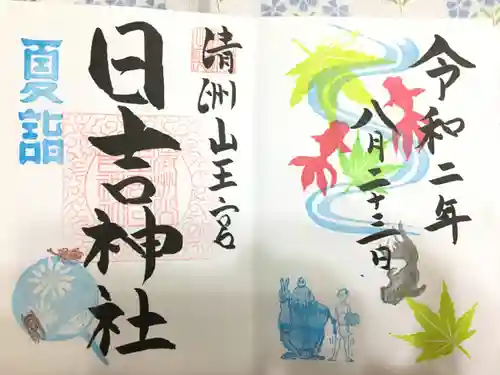 令和二年
八月二十三日
清洲山王宮
日吉神社
夏詣